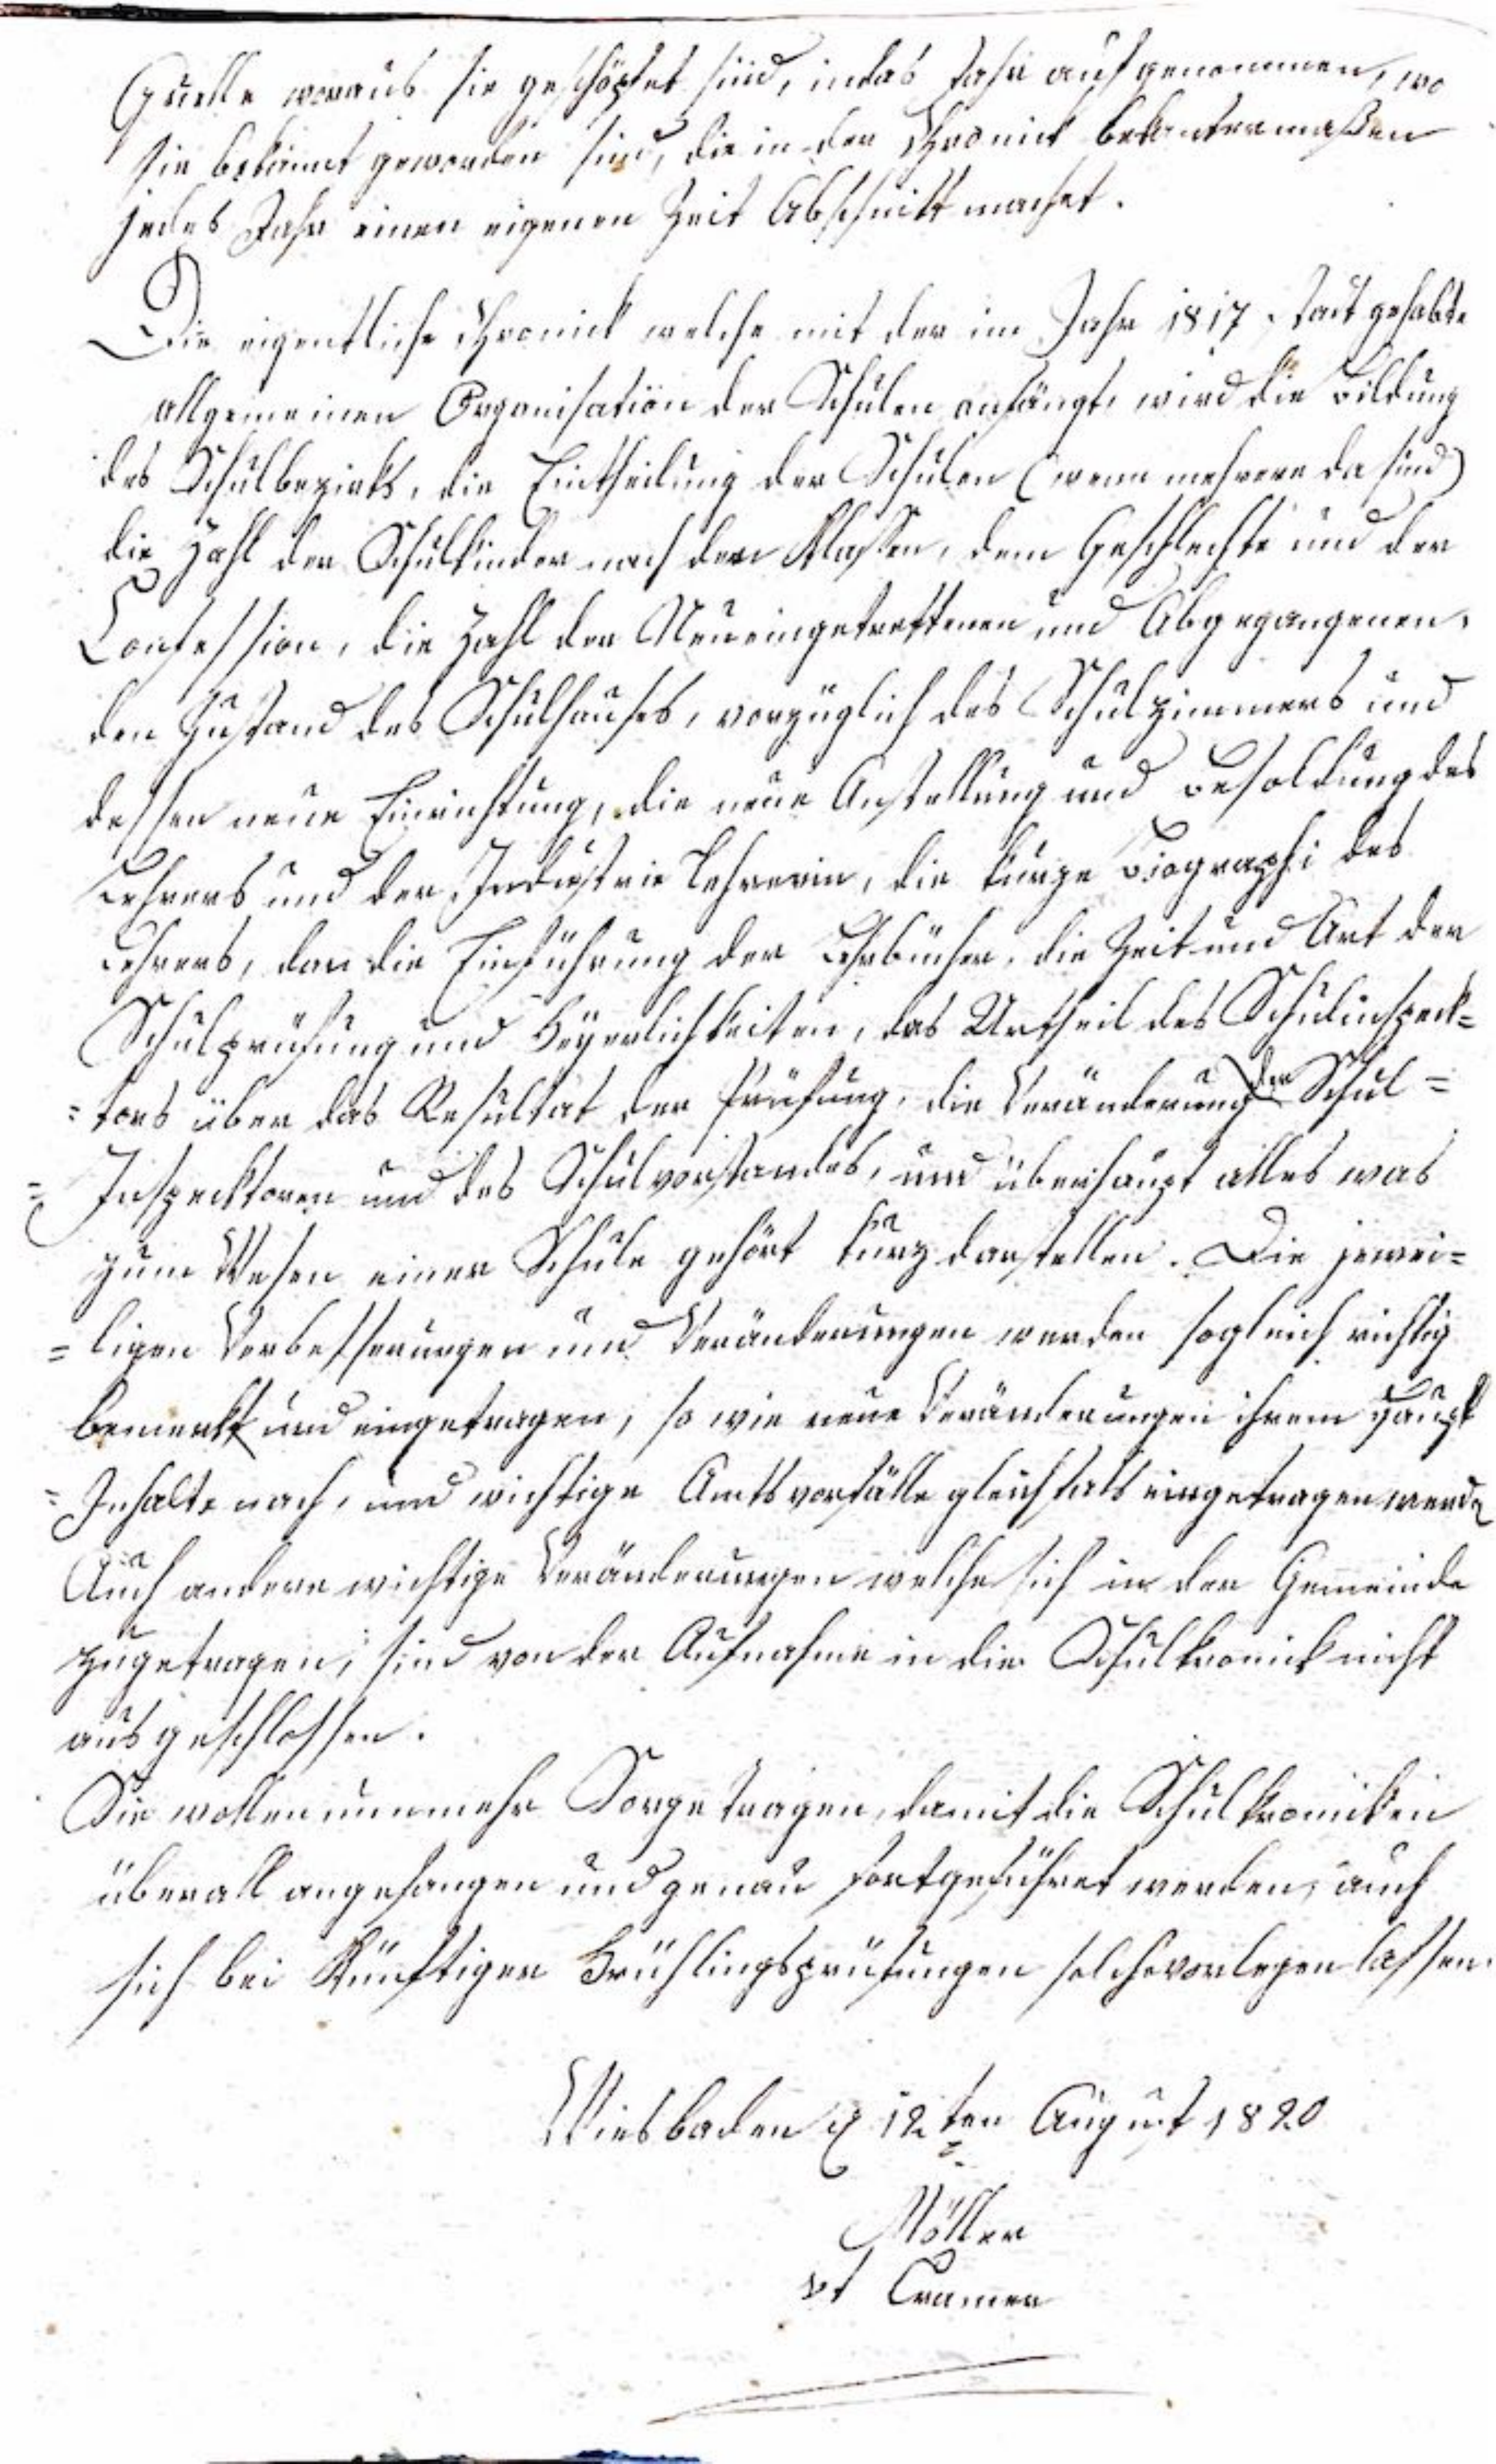 Quelle woraus sie geschöpfet sind, in das Jahr aufgenommen, wo
sie bekannt geworden sind, die in der Chronick bekantermaßen
jedes Jahr einen eigenen Zeit Abschnitt machet.
Die eigentliche Chronick welche mit der im Jahr 1817 statt gehabte
allgemeinen Organisation der Schulen anfängt, wird die Bildung
des Schulbezirks, die Eintheilung der Schulen (wenn mehrere da sind)
die Zahl der Schulkinder nach den Klassen, dem Geschlechte und der
Confession, die Zahl der Neueingetrettenen und Abgegangenen,
den Zustand des Schulhauses, vorzüglich des Schulzimmers und
dessen neue Einrichtung, die neue Anstellung und Besoldung des
Lehrers und der Industrie Lehrerin, die kurze Biographi des
Lehrers, dan die Einführung der Lehrbücher, die Zeit und Art der
Schulprüfung und Feyerlichkeiten, das Urtheil des Schulinspeck=
=tors über das Resultat der Prüfung, die Veränderung der Schul=
=Inspecktoren und des Schulvorstandes, und überhaupt alles was
zum Wesen einer Schule gehört kurz darstellen. Die jewei=
=ligen Verbesserungen und Veränderungen werden sogleich richtig
bemerkt und eingetragen, so wie neue Veränderungen ihrem Haupt
=Inhalte nach, und wichtige Amtsvorfälle gleichfals eingetragen werde
Auch andere wichtige Veränderungen welche sich in der Gemeinde
zugetragen, sind von der Aufnahme in die Schulkronick nicht
ausgeschlossen.
Sie wollen nunmehr Sorge tragen, damit die Schulkronicken
überall angefangen und genau fortgeführet werden, auch
sich bei künftigen Frühlingsprüfungen solche vorlegen lassen.
Wiesbaden d 12ten August 1820
Möller
vt Cramer